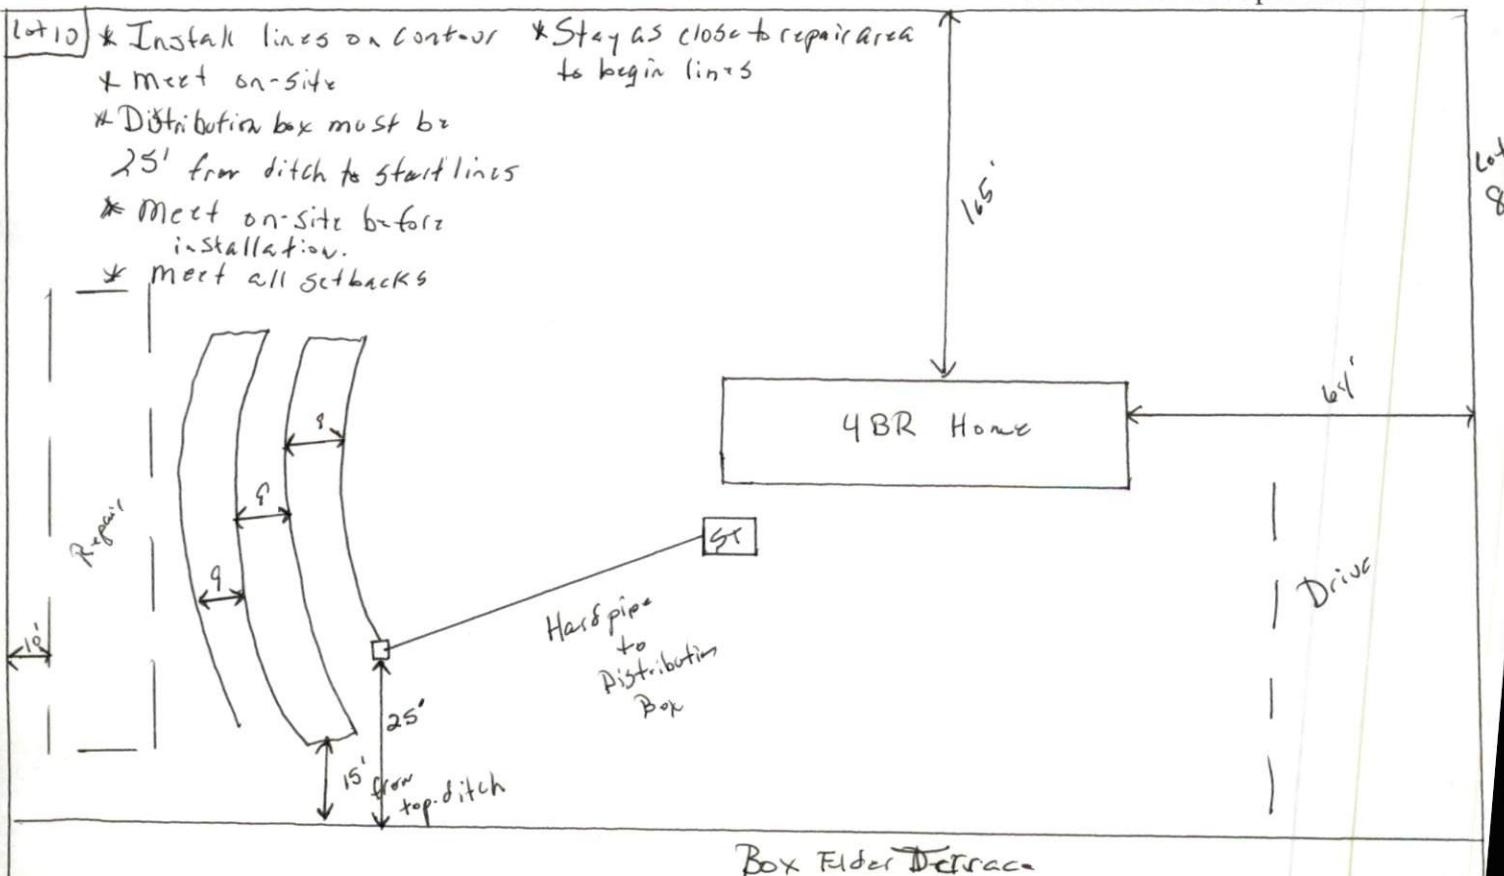 Lot 10
* Install lines on contour
* Meet on-site
* Distribution box must be
25' from ditch to start lines
* Meet on-site before
installation.
* Meet all setbacks
* Stay as close to repair area
to begin lines
165'
Lot
8
4BR Home
Repair
9
ST
Drive
Hard pipe
to
Distribution
Box
10'
25'
15' from
top ditch
Box Elder Terrace